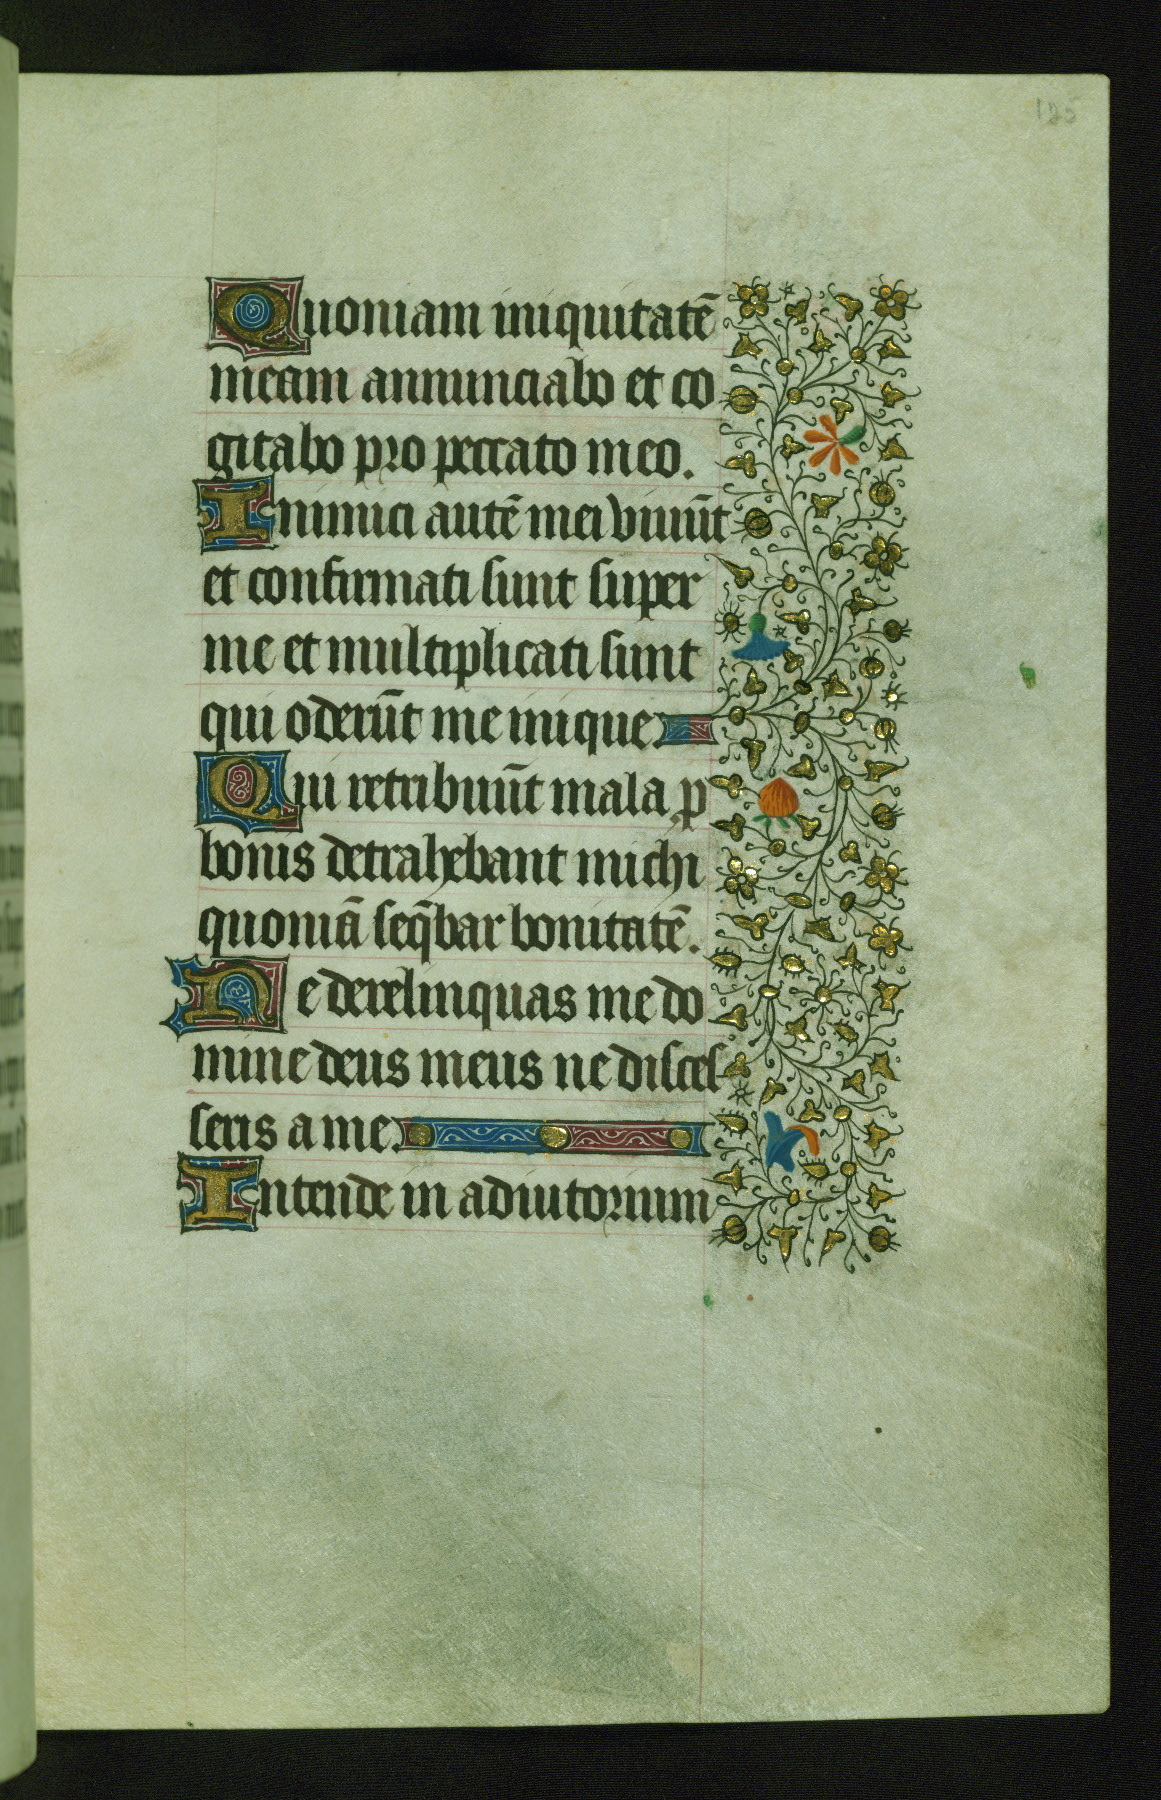 125
Quoniam iniquitatē
meam annunciabo et co
gitabo pro peccato meo.
Inimici autē mei viuūt
et confirmati sunt super
me et multiplicati sunt
qui oderūt me inique
Qui retribuūt mala ꝓ
bonis detrahebant michi
quoniā seq̄bar bonitatē.
Ne derelinquas me do
mine deus meus ne disces
seris a me.
Intende in adiutorium